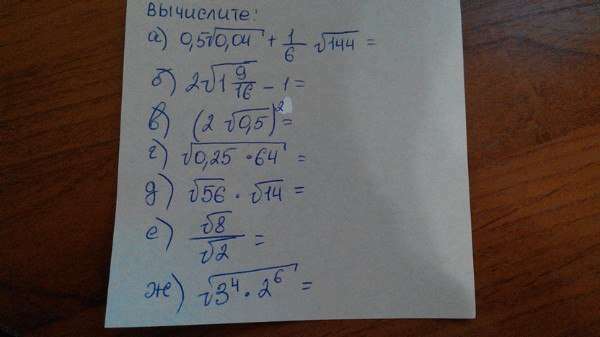 вычислите:
а) 0,5√0,04 + 1/6 √144 =
б) 2√1 9/16 - 1 =
в) (2 √0,5)² =
г) √0,25 · 64 =
д) √56 · √14 =
е) √8/√2 =
ж) √3⁴ · 2⁶ =